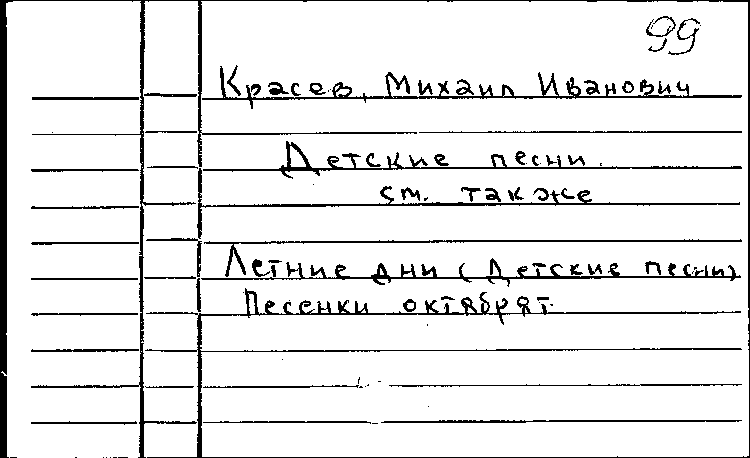 99
Красев, Михаил Иванович
Детские песни.
см. также
Летние дни (Детские песни)
Песенки октябрят.